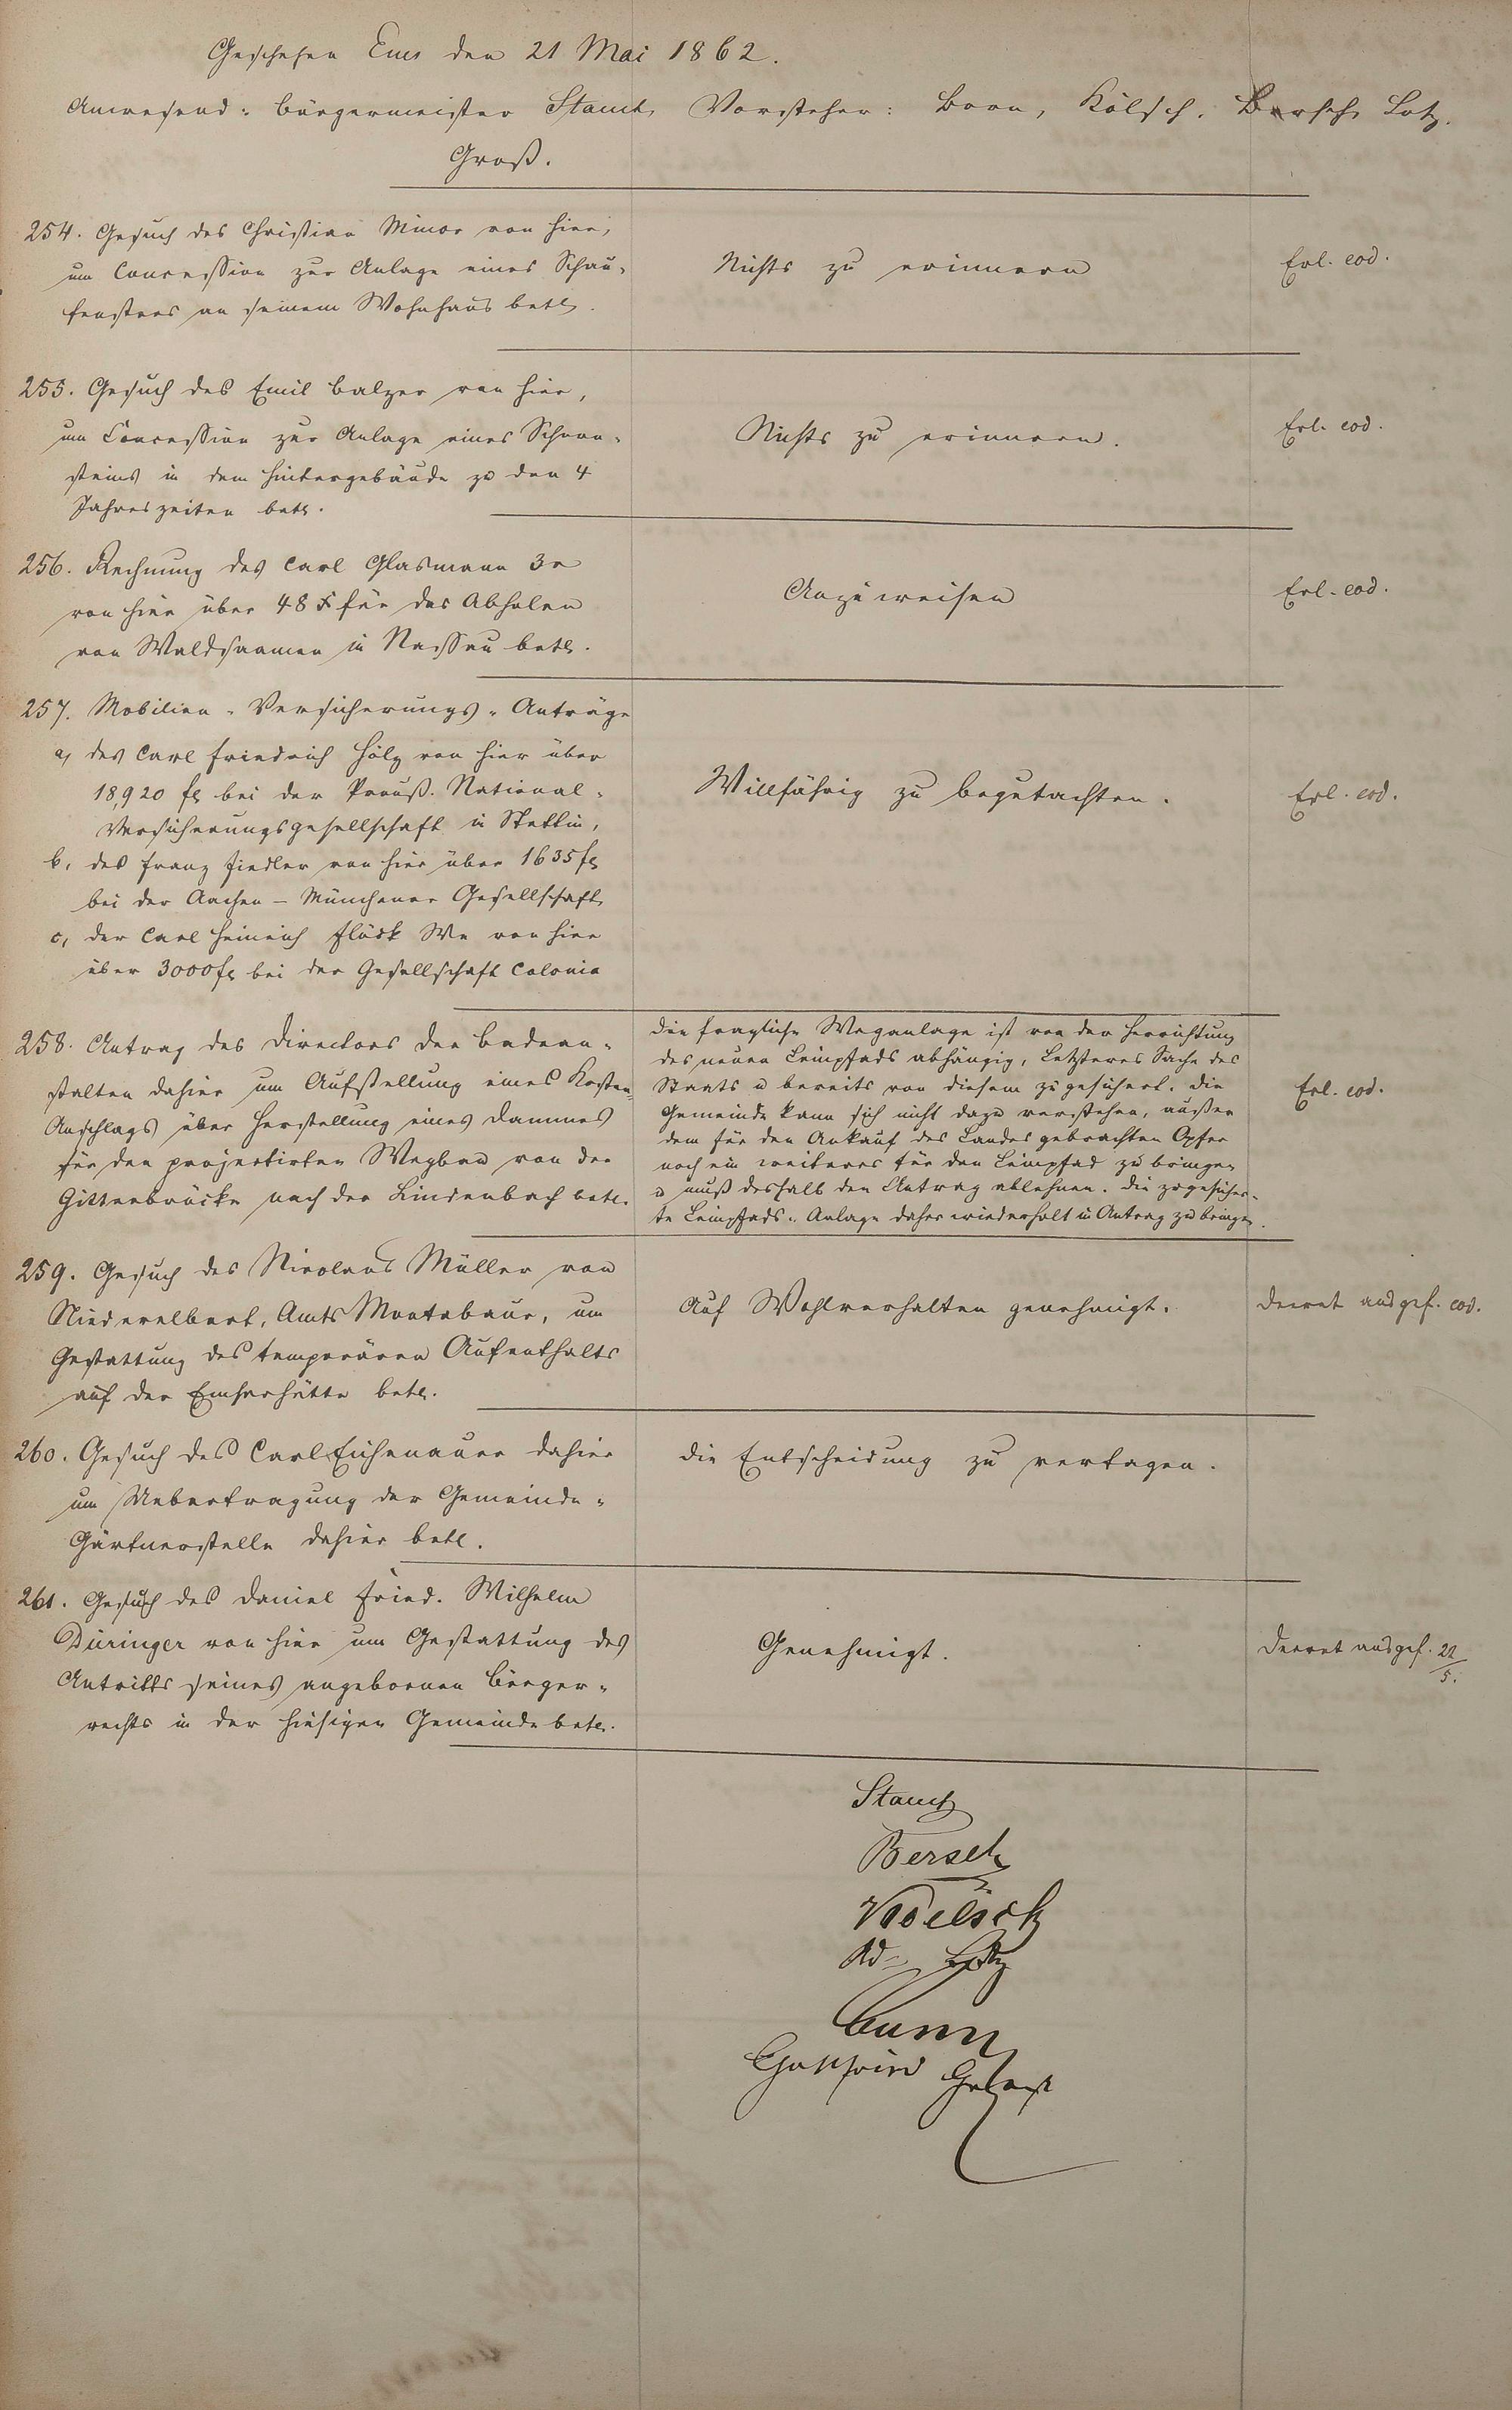 Geschehen Ems den 21 Mai 1862.
Anwesend: Bürgermeister Stamb, Vorsteher: Born, Kölsch, Bersch, Lotz,
Groß.
254. Gesuch des Christian Minor von hier,
um Concession zur Anlage eines Schau-
fensters an seinem Wohnhaus betr.
Nichts zu erinnern
Erl. eod.
255. Gesuch des Emil Balzer von hier,
um Concession zur Anlage eines Schorn-
steins in dem Hintergebäude zu den 4
Jahreszeiten betr.
Nichts zu erinnern.
Erl. eod.
256. Rechnung des Carl Glasmann 3r
von hier über 48 x für das Abholen
von Waldsaamen in Nassau betr.
Anzuweisen
Erl. eod.
257. Mobilien-Versicherungs-Anträge
a, des Carl Friedrich Hölz von hier über
18,920 fl bei der Preuß. National-
Versicherungsgesellschaft in Stettin,
b, des Franz Fiedler von hier über 1635 fl
bei der Aachen-Münchener Gesellschaft,
c, der Carl Heinrich Flöck We von hier
über 3000 fl bei der Gesellschaft Colonia
Willfährig zu begutachten.
Erl. eod.
258. Antrag des Directors der Badean-
stalten dahier um Aufstellung eines Kosten-
Anschlags über Herstellung eines Dammes
für den projectirten Wegbau von der
Gitterbrücke nach der Lindenbach betr.
Die fragliche Weganlage ist von der Herrichtung
des neuen Leinpfads abhängig, Letzteres Sache des
Staats u bereits von diesem zugesichert. Die
Gemeinde kann sich nicht dazu verstehen, außer
dem für den Ankauf des Landes gebrachten Opfer
noch ein weiteres für den Leinpfad zu bringen
u muß deshalb den Antrag ablehnen. Die zugesicher-
te Leinpfads-Anlage daher wiederholt in Antrag zu bringen.
Erl. eod.
259. Gesuch des Nicolaus Müller von
Niederelbert, Amts Montabaur, um
Gestattung des temporären Aufenthalts
auf der Emserhütte betr.
Auf Wohlverhalten genehmigt.
Decret ausgef. eod.
260. Gesuch des Carl Eichenauer dahier
um Uebertragung der Gemeinde-
Gärtnerstelle dahier betr.
Die Entscheidung zu vertagen.
261. Gesuch des Daniel Fried. Wilhelm
Düringer von hier um Gestattung des
Antritts seines angebornen Bürger-
rechts in der hiesigen Gemeinde betr.
Genehmigt.
Decret ausgef. 22/5.
Stamb
Bersch
Koelsch
Ad. Lotz
Born
Gottfried Groß